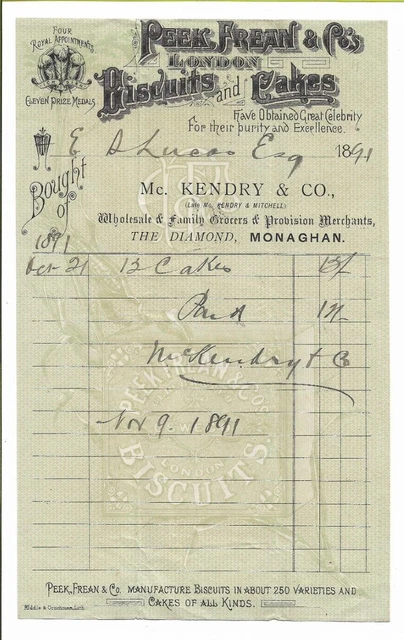 FOUR
ROYAL APPOINTMENTS
ELEVEN PRIZE MEDALS
PEEK, FREAN & CO'S
LONDON
Biscuits and Cakes
Have Obtained Great Celebrity
For their purity and Excellence.
E D Lucas Esq 1891
Bought of
Mc. KENDRY & CO.,
(Late Mc. KENDRY & MITCHELL)
Wholesale & Family Grocers & Provision Merchants,
THE DIAMOND, MONAGHAN.
1891
Oct 21 13 Cakes 13/
Paid
McKendry & Co
Nov 9. 1891
PEEK, FREAN & CO'S
LONDON
BISCUITS.
PEEK, FREAN & CO. MANUFACTURE BISCUITS IN ABOUT 250 VARIETIES AND
CAKES OF ALL KINDS.